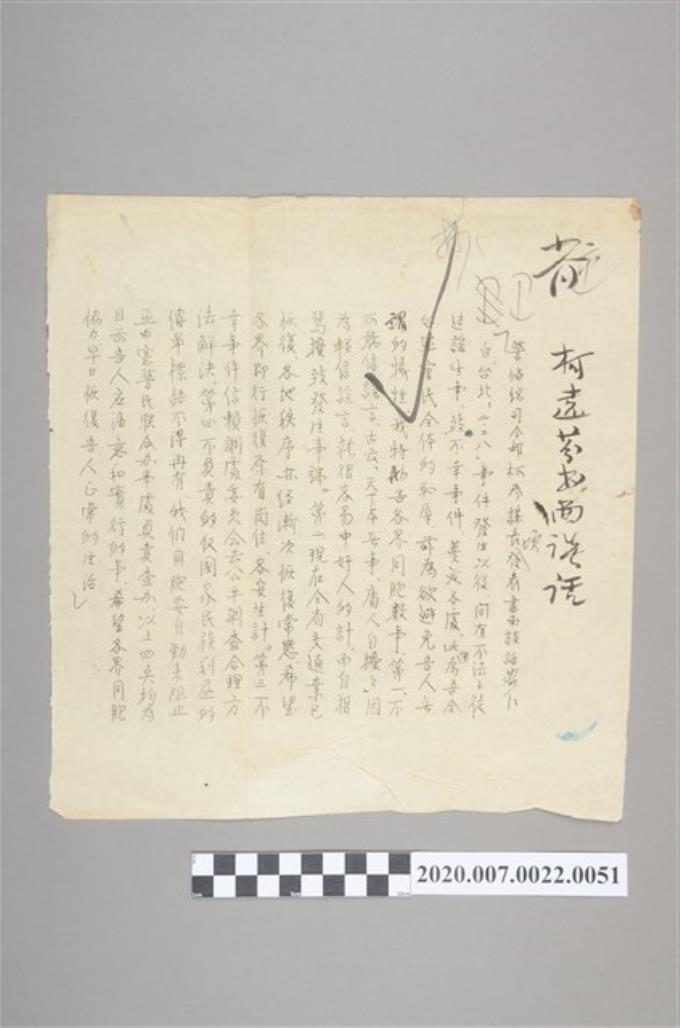 柯遠芬書面談話
警備總司令部柯參謀長頃發表書面談話如下
自「台北二二八」事件發生以後,間有不法之徒
造謠生事,致不幸事件,蔓延各處,此為吾全
台 民全体的恥辱,
謂的犧牲,我特 告各界同胞數事,第一不
可輕信謠言,古云,天下本無事,庸人自擾之,因
為輕信謠言,就很容易中奸人的計,而自相
驚擾致發生事端。第二現在全省交通業已
恢復,各地秩序亦經漸次恢復常態希望
各界即行恢復原有崗位,各安生計。第三不
幸事件信賴調處委員会去公平調查合理方
法解決。第四不負責的反國家民族利益的
傳單標語不得再有,我們自胞要自動來阻止
並由憲警民联合办事處負責查办,以上四点均為
目前吾人应注意和實行的事,希望各界同胞
協力,早日恢復吾人正常的生活」
2020.007.0022.0051